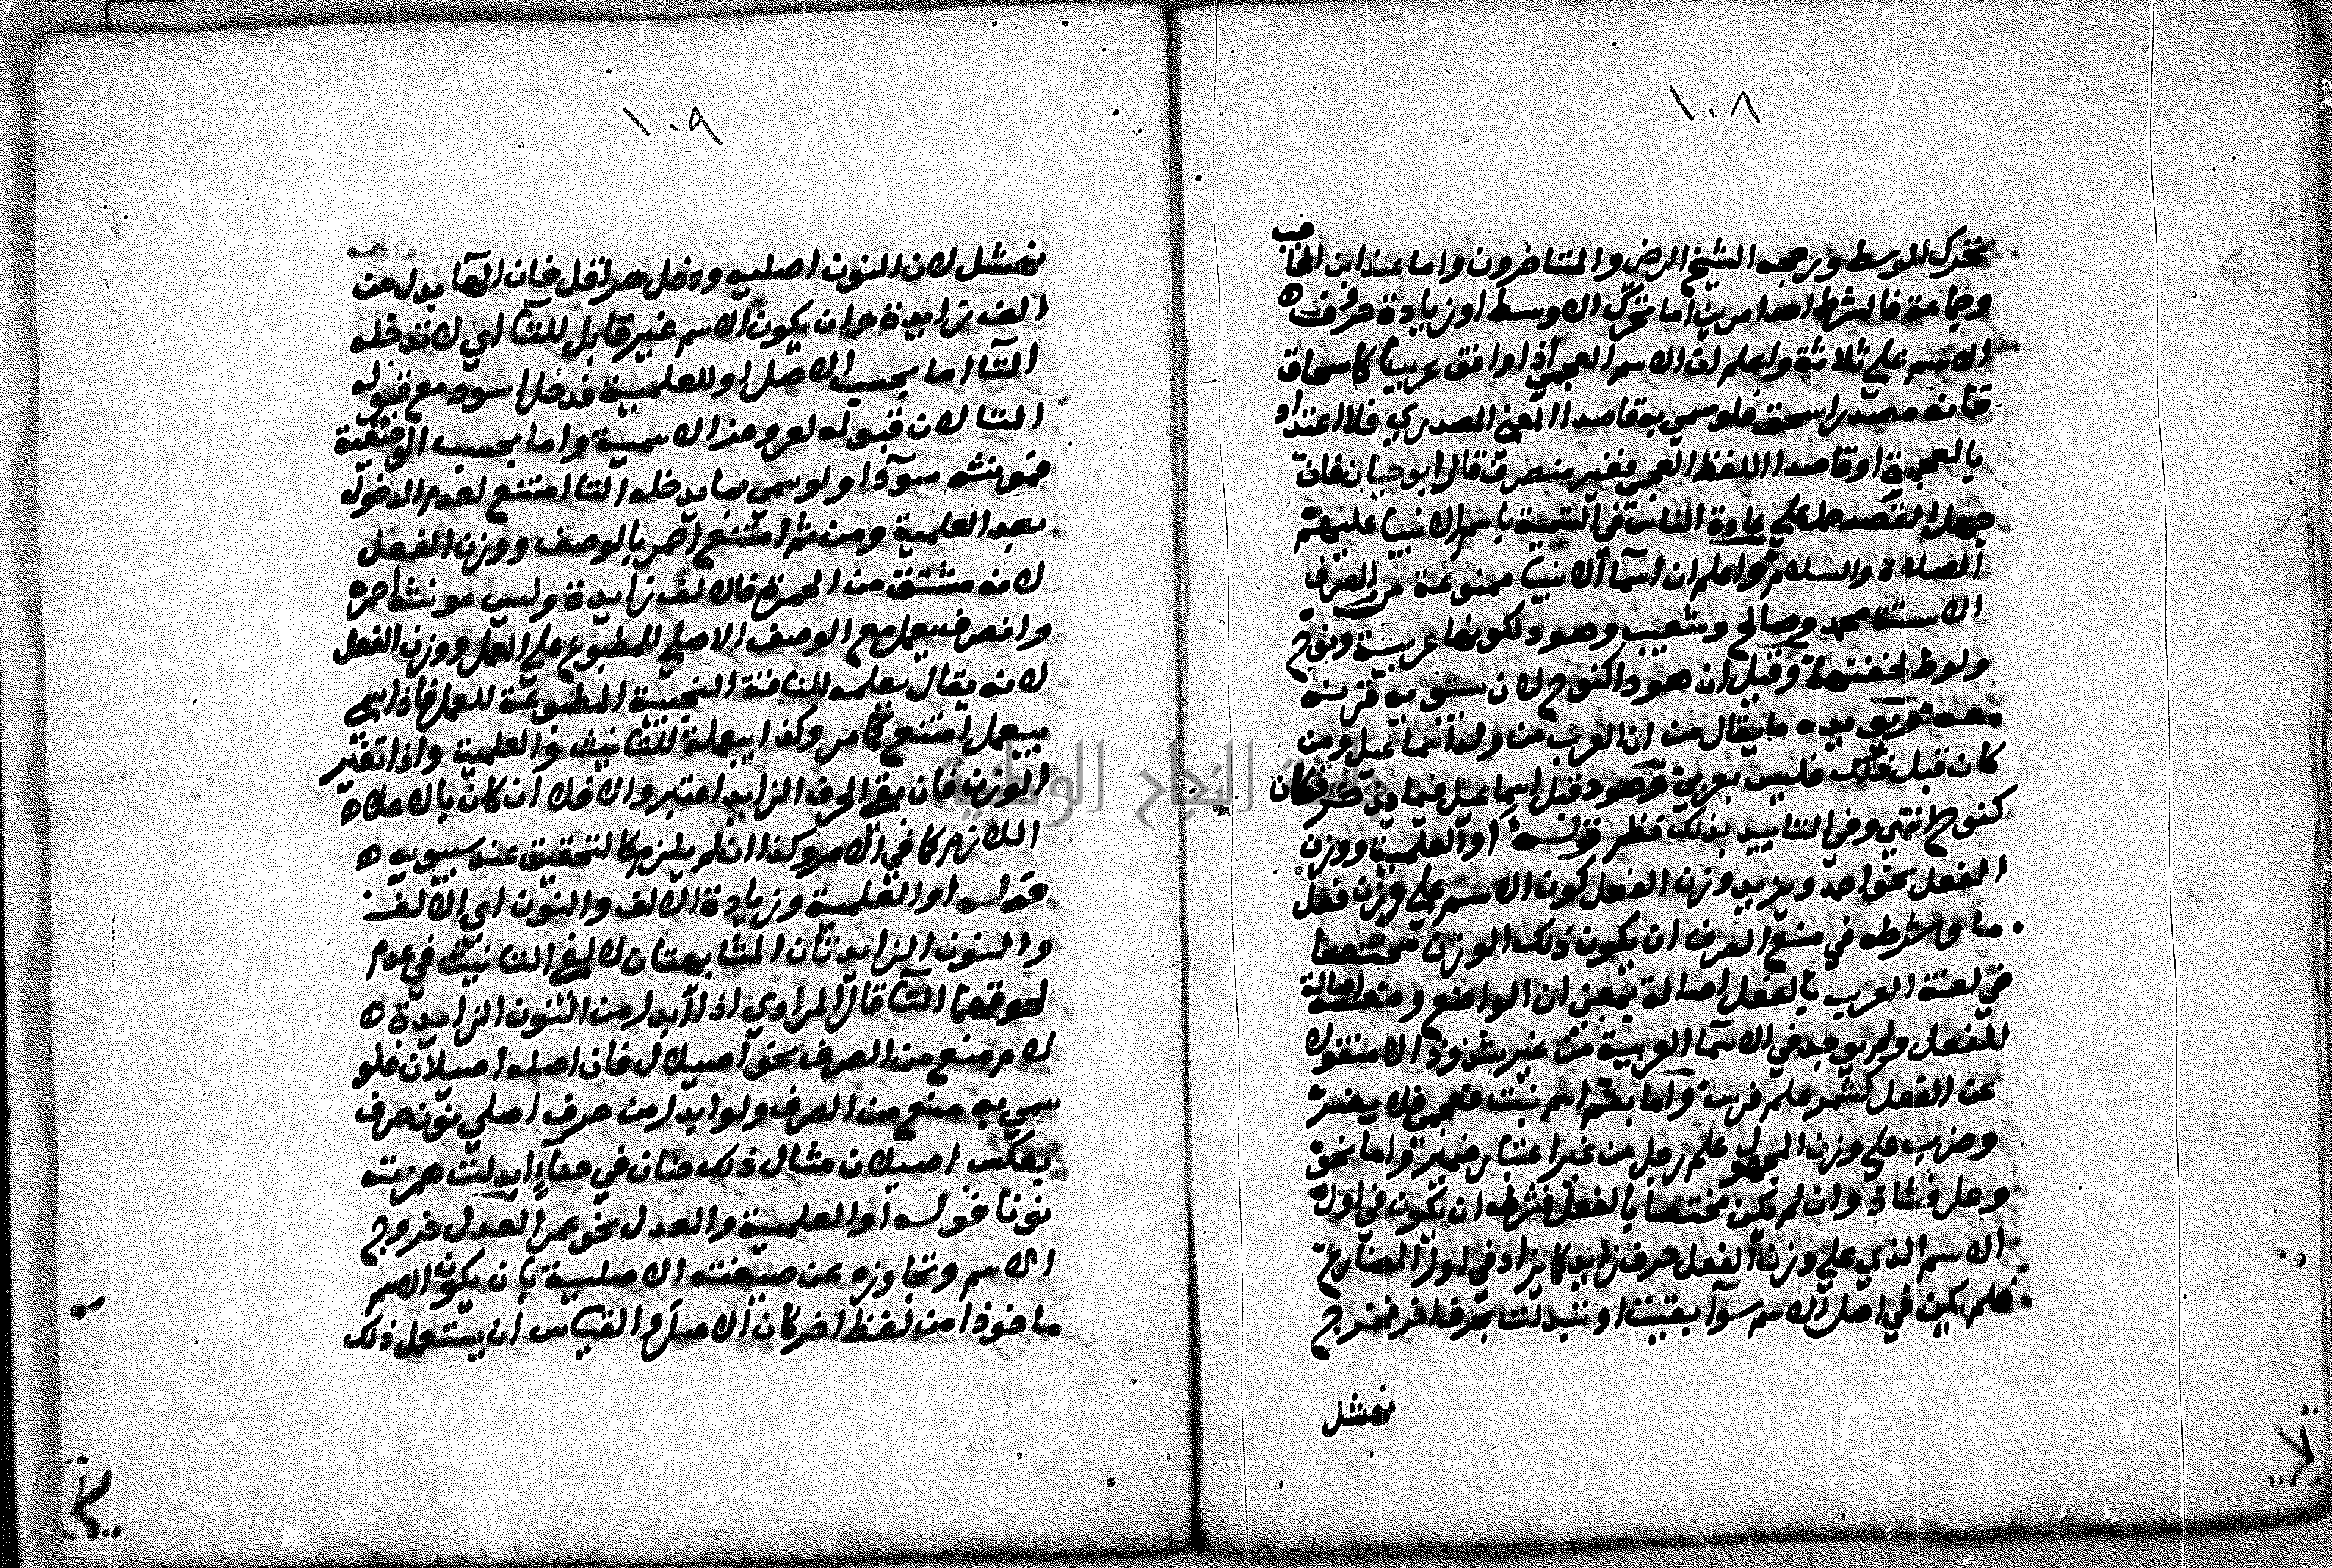 ١٠٨
تحرك الاوسط ورجحه الشيخ الرضي والمتاخرون واما عند ابن الحاجب
وجماعة فالشرط احد امرين اما تحرك الاوسط او زيادة حرف
الاسم على ثلاثة واعلم ان الاسم العجمي اذا وافق عربيا كاسحاق
فانه مصدر اسحق فلو سمي به قاصدا المعنى المصدري فلا اعتداد
بالعجمة او قاصدا اللفظ العجمي فغير منصرف قال ابو حيان فان
جهل القصد حمل على عادة الناس في التسمية باسم الانبيا عليهم
الصلاة والسلام واعلم ان اسما الانبيا ممنوعة من الصرف
الا ستة محمد وصالح وشعيب وهود لكونها عربية ونوح
ولوط لخفتهما وقيل ان هود اكنوح لان سيبويه قرنه
معه ويويده ما يقال من ان العرب من ولد اسماعيل ومن
كان قبل ذلك فليس بعربي وهود قبل اسماعيل فيما يذكر فكان
كنوح انتهى وفي التاييد بذلك نظر قوله او العلمية ووزن
الفعل نحو احمد ويزيد وزن الفعل كون الاسم على وزن فعل
ما وشرطه في منع الصرف ان يكون ذلك الوزن مختصا
في لغة العرب بالفعل اصالة بمعنى ان الواضع وضعه اصالة
للفعل ولم يوجد في الاسما العربية من غير شذوذ الا منقولا
عن الفعل كشمر علم فرس واما بقم اسم نبت فعجمي فلا يضر
وضرب على وزن المجهول علم رجل من غير اعتبار ضمير واما نحو
وعل فشاذ وان لم يكن مختصا بالفعل فشرطه ان تكون في اول
الاسم الذي على وزن الفعل حرف زايد كما يزاد في اول المضارع
فلم يكن في اصل الاسم سوآ بقيت او تبدلت بحرف اخر فخرج
نهشل
١٠٩
نهشل لان النون اصلية ودخل هراقل فان الها بدل من
الف زايدة وان يكون الاسم غير قابل للتا اي لا تدخله
التا اما بحسب الاصل او للعلمية فدخل اسود مع قبوله
التا لان قبوله لعروض الاسمية واما بحسب الوصفية
فمونثه سودا ولو سمي بما يدخله التا امتنع لعدم الدخول
بعد العلمية ومن ثم امتنع احمر بالوصف ووزن الفعل
لانه مشتق من الحمرة فالالف زايدة وليس مونثه احمرة
وانصرف يعمل مع الوصف الاصلي للمطبوع على العمل ووزن الفعل
لانه يقال يعملة للناقة النجيبة المطبوعة للعمل فاذا سمي
بيعمل امتنع كما مر وكذا بيعملة للتانيث والعلمية واذا تغير
الوزن فان بقي الحرف الزايد اعتبر والا فلا ان كان بالاعلال
اللازم كما في الامر وكذا ان لم يلزم كالتخفيف عند سيبويه
قوله او العلمية وزيادة الالف والنون اي الالف
والنون الزايدتان المشابهتان لالفي التانيث في عدم
لحوقهما التا قال المرادي اذا ابدل من النون الزايدة
لام منع من الصرف نحو اصيلال فان اصله اصيلان فلو
سمي به منع من الصرف ولو ابدل من حرف اصلي نون صرف
بعكس اصيلان مثال ذلك حنان في حناء ابدلت همزته
نونا قوله او العلمية والعدل نحو عمر العدل خروج
الاسم وتجاوزه عن صيغته الاصلية بان يكون الاسم
ماخوذا من لفظ اخر كان الاصل والقياس ان يستعمل ذلك